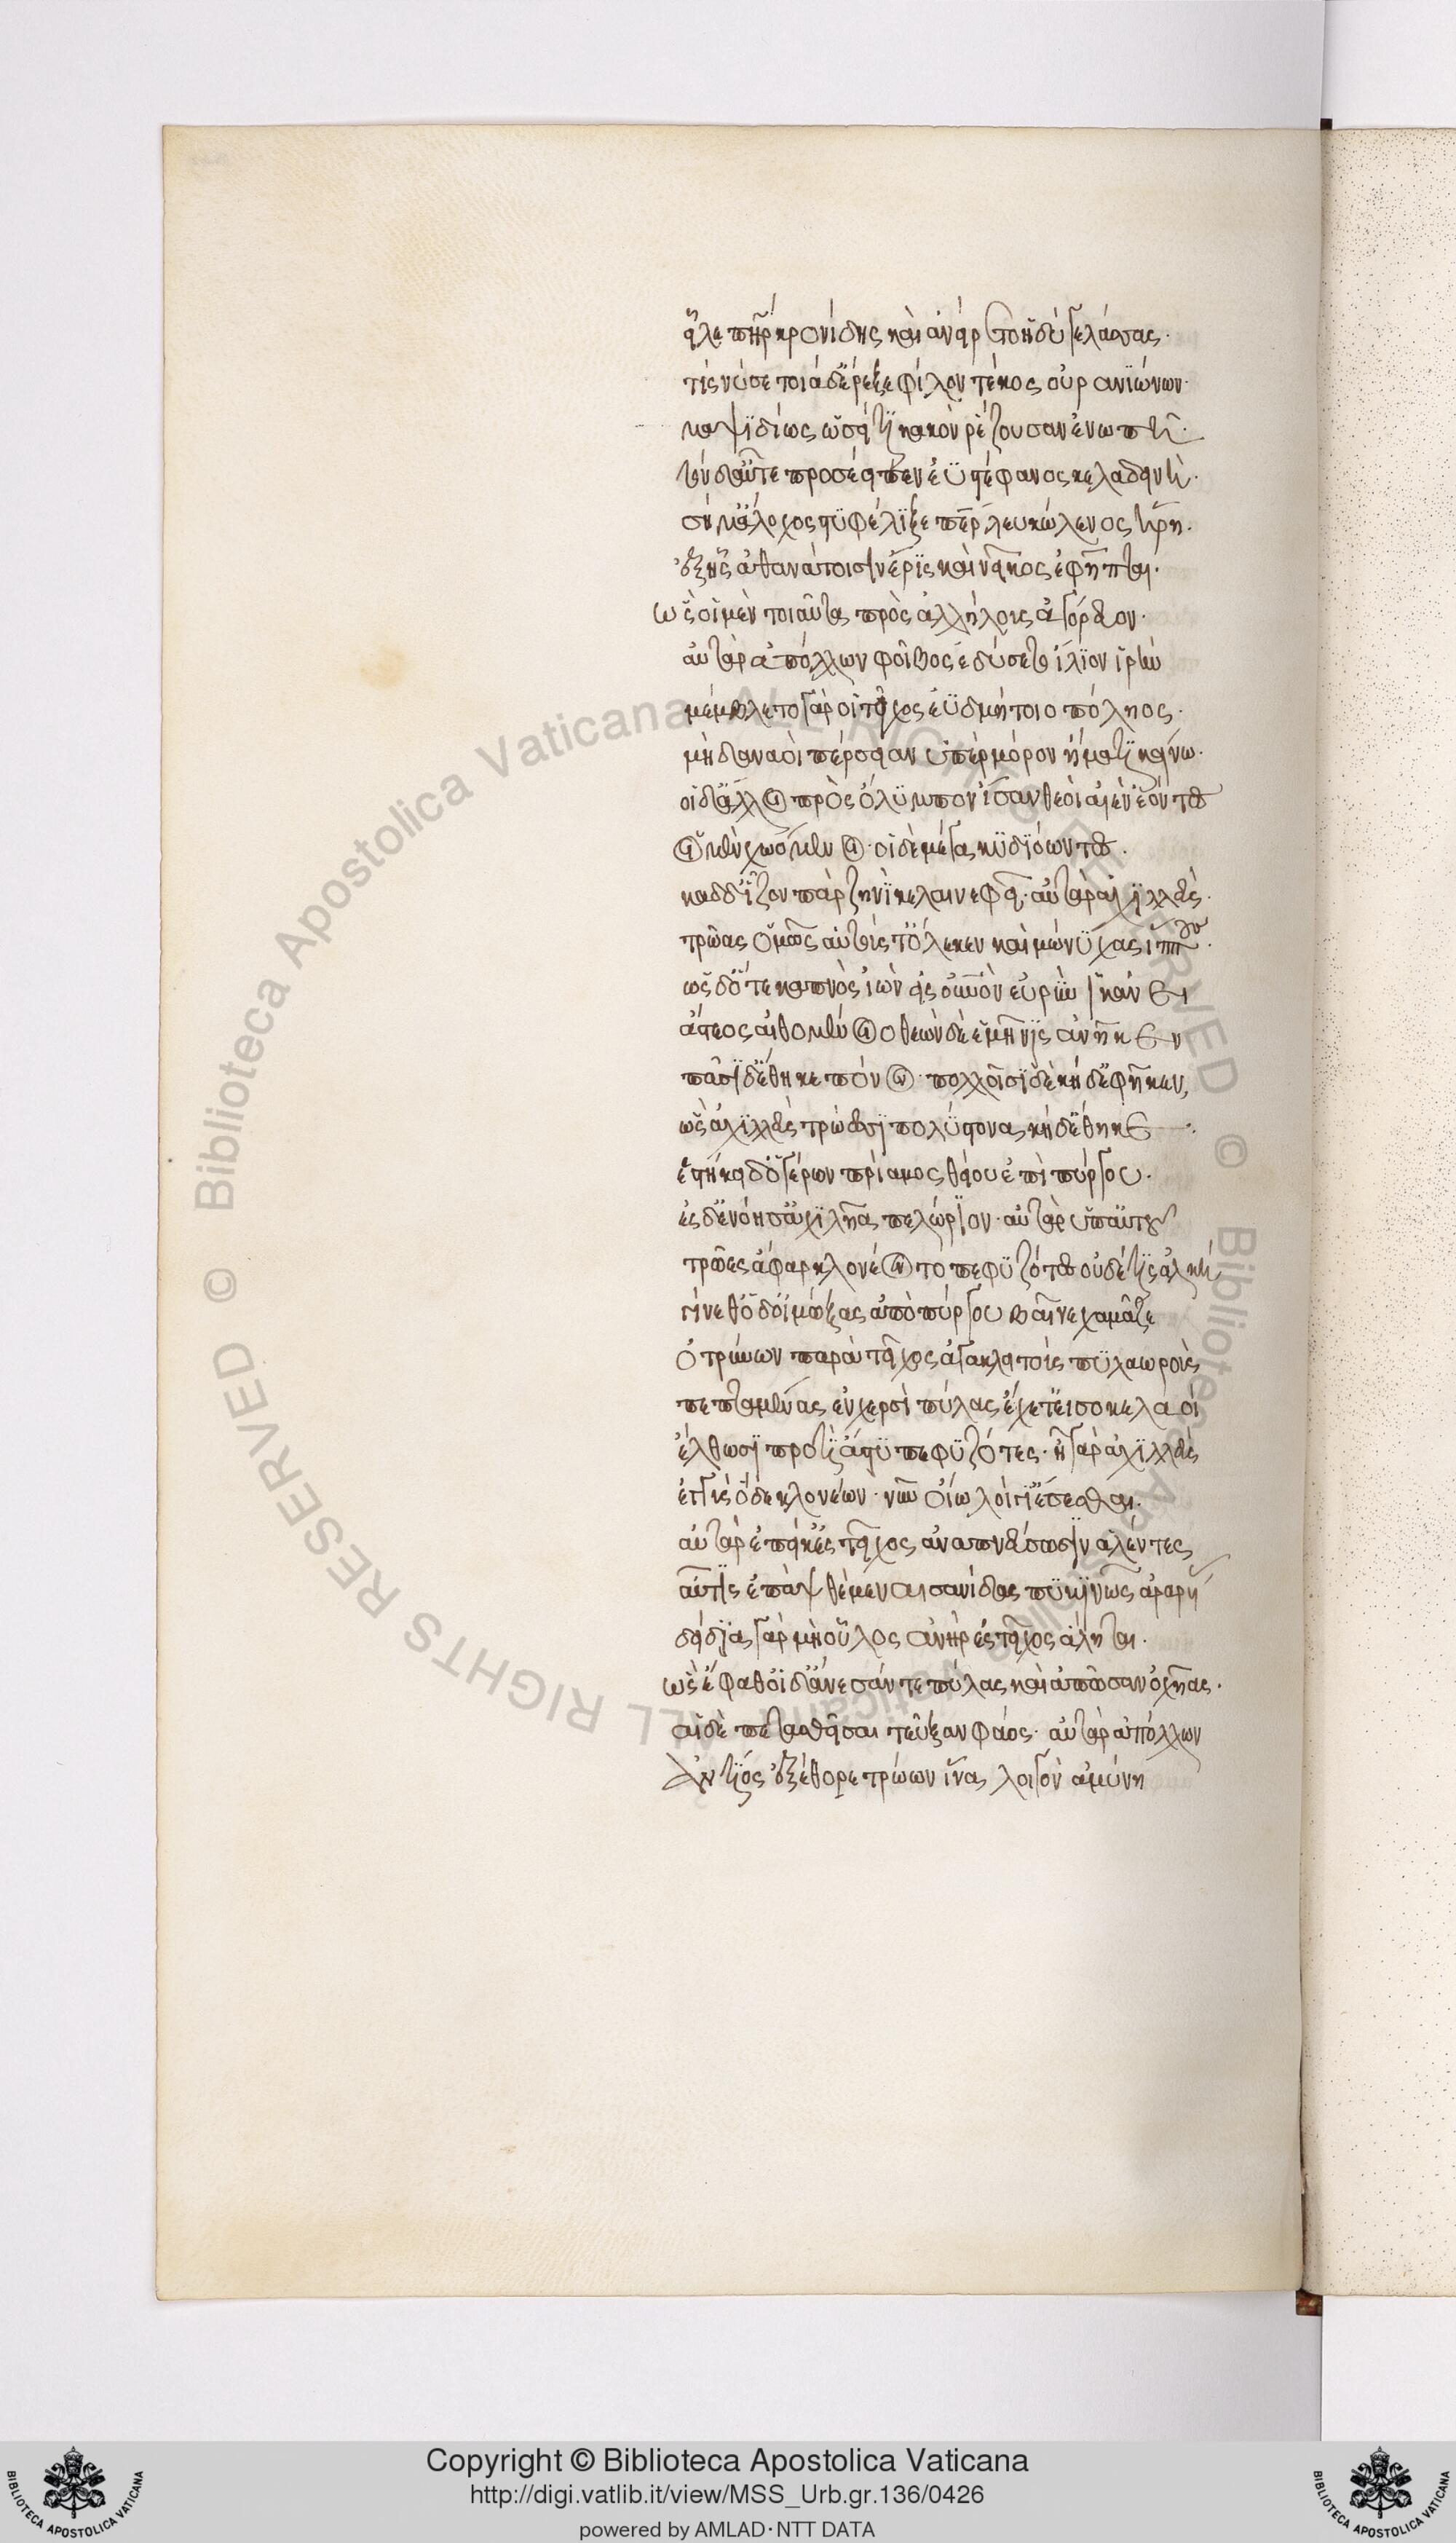 εἷλε πατὴρ κρονίδης καὶ ἀνείρετο ἡδὺ γελάσσας·
τίς νύ σε τοιάδ' ἔρεξε φίλον τέκος οὐρανϊώνων·
μαψϊδίως ὡσεί τϊ κακὸν ῥέζουσαν ἐνωπῆ·
τὸν δ' αὖτε προσέειπεν ἐϋστέφανος κελαδεινή·
σή μ' ἄλοχος στυφέλϊξε πάτερ λευκώλενος ἥρη·
ἐξ ἧς ἀθανάτοισιν ἔρϊς καὶ νεῖκος ἐφῆπται·
ὣς οἱ μὲν τοιαῦτα πρὸς ἀλλήλους ἀγόρευον·
αὐτὰρ ἀπόλλων φοῖβος ἐδύσετο ἴλϊον ἱρήν
μέμβλετο γάρ οἱ τεῖχος ἐϋδμήτοιο πόληος·
μὴ δαναοὶ πέρσειαν ὑπὲρ μόρον ἤματϊ κείνω·
οἱ δ' ἄλλοι πρὸς ὄλϋμπον ἴσαν θεοὶ αἰὲν ἐόντες
οἱ μὲν χωόμενοι· οἱ δὲ μέγα κϋδϊόωντες·
καδδ' ἷζον πὰρ ζηνὶ κελαινεφεῖ· αὐτὰρ ἀχϊλλεὺς·
τρῶας ὁμῶς αὐτούς τ' ὄλεκεν καὶ μώνϋχας ἵππους·
ὡς δ' ὅτε καπνὸς ἰὼν εἰς οὐρανὸν εὐρὺν ἵκανει
ἄστεος αἰθομένοιο θεῶν δέ ἑ μῆνϊς ἀνῆκεν
πᾶσϊ δ' ἔθηκε πόνον· πολλοῖσϊ δὲ κήδε' ἐφῆκεν,
ὣς ἀχϊλλεὺς τρώεσσϊ πολύστονα κήδε' ἔθηκε·
ἑστήκει δ' ὁ γέρων πρίαμος θείου ἐπὶ πύργου·
ἐς δ' ἐνόησ' ἀχϊλῆα πελώρϊον· αὐτὰρ ὑπ' αὐτοῦ
τρῶες ἄφαρ κλονέοντο πεφϋζότες οὐδέ τϊς ἀλκὴ
γίνεθ' ὁ δ' οἰμώξας ἀπὸ πύργου βαῖνε χαμᾶζε
ὀτρύνων παρὰ τεῖχος ἀγακλειτοὺς πϋλαωρούς
πεπταμένας ἐν χερσὶ πύλας ἔχετ' εἰσόκε λαοί
ἔλθωσϊ προτὶ ἄστυ πεφϋζότες· ἦ γὰρ ἀχϊλλεὺς
ἐγγὺς ὅδε κλονέων· νῦν οἴω λοίγϊ' ἔσεσθαι·
αὐτὰρ ἐπεί κ' ἐς τεῖχος ἀναπνεύσωσϊν ἀλέντες
αὖτϊς ἐπ' ἂψ θέμεναι σανίδας πϋκϊνῶς ἀραρυί
δείδϊα γὰρ μὴ οὖλος ἀνὴρ ἐς τεῖχος ἄληται·
ὣς ἔφαθ' οἱ δ' ἄνεσάν τε πύλας καὶ ἀπῶσαν ὀχῆας·
αἱ δὲ πετασθεῖσαι τεῦξαν φάος· αὐτὰρ ἀπόλλων
Ἀντϊος ἐξέθορε τρώων ἵνα λοιγὸν ἀμύνη
Copyright © Biblioteca Apostolica Vaticana
http://digi.vatlib.it/view/MSS_Urb.gr.136/0426
powered by AMLAD·NTT DATA